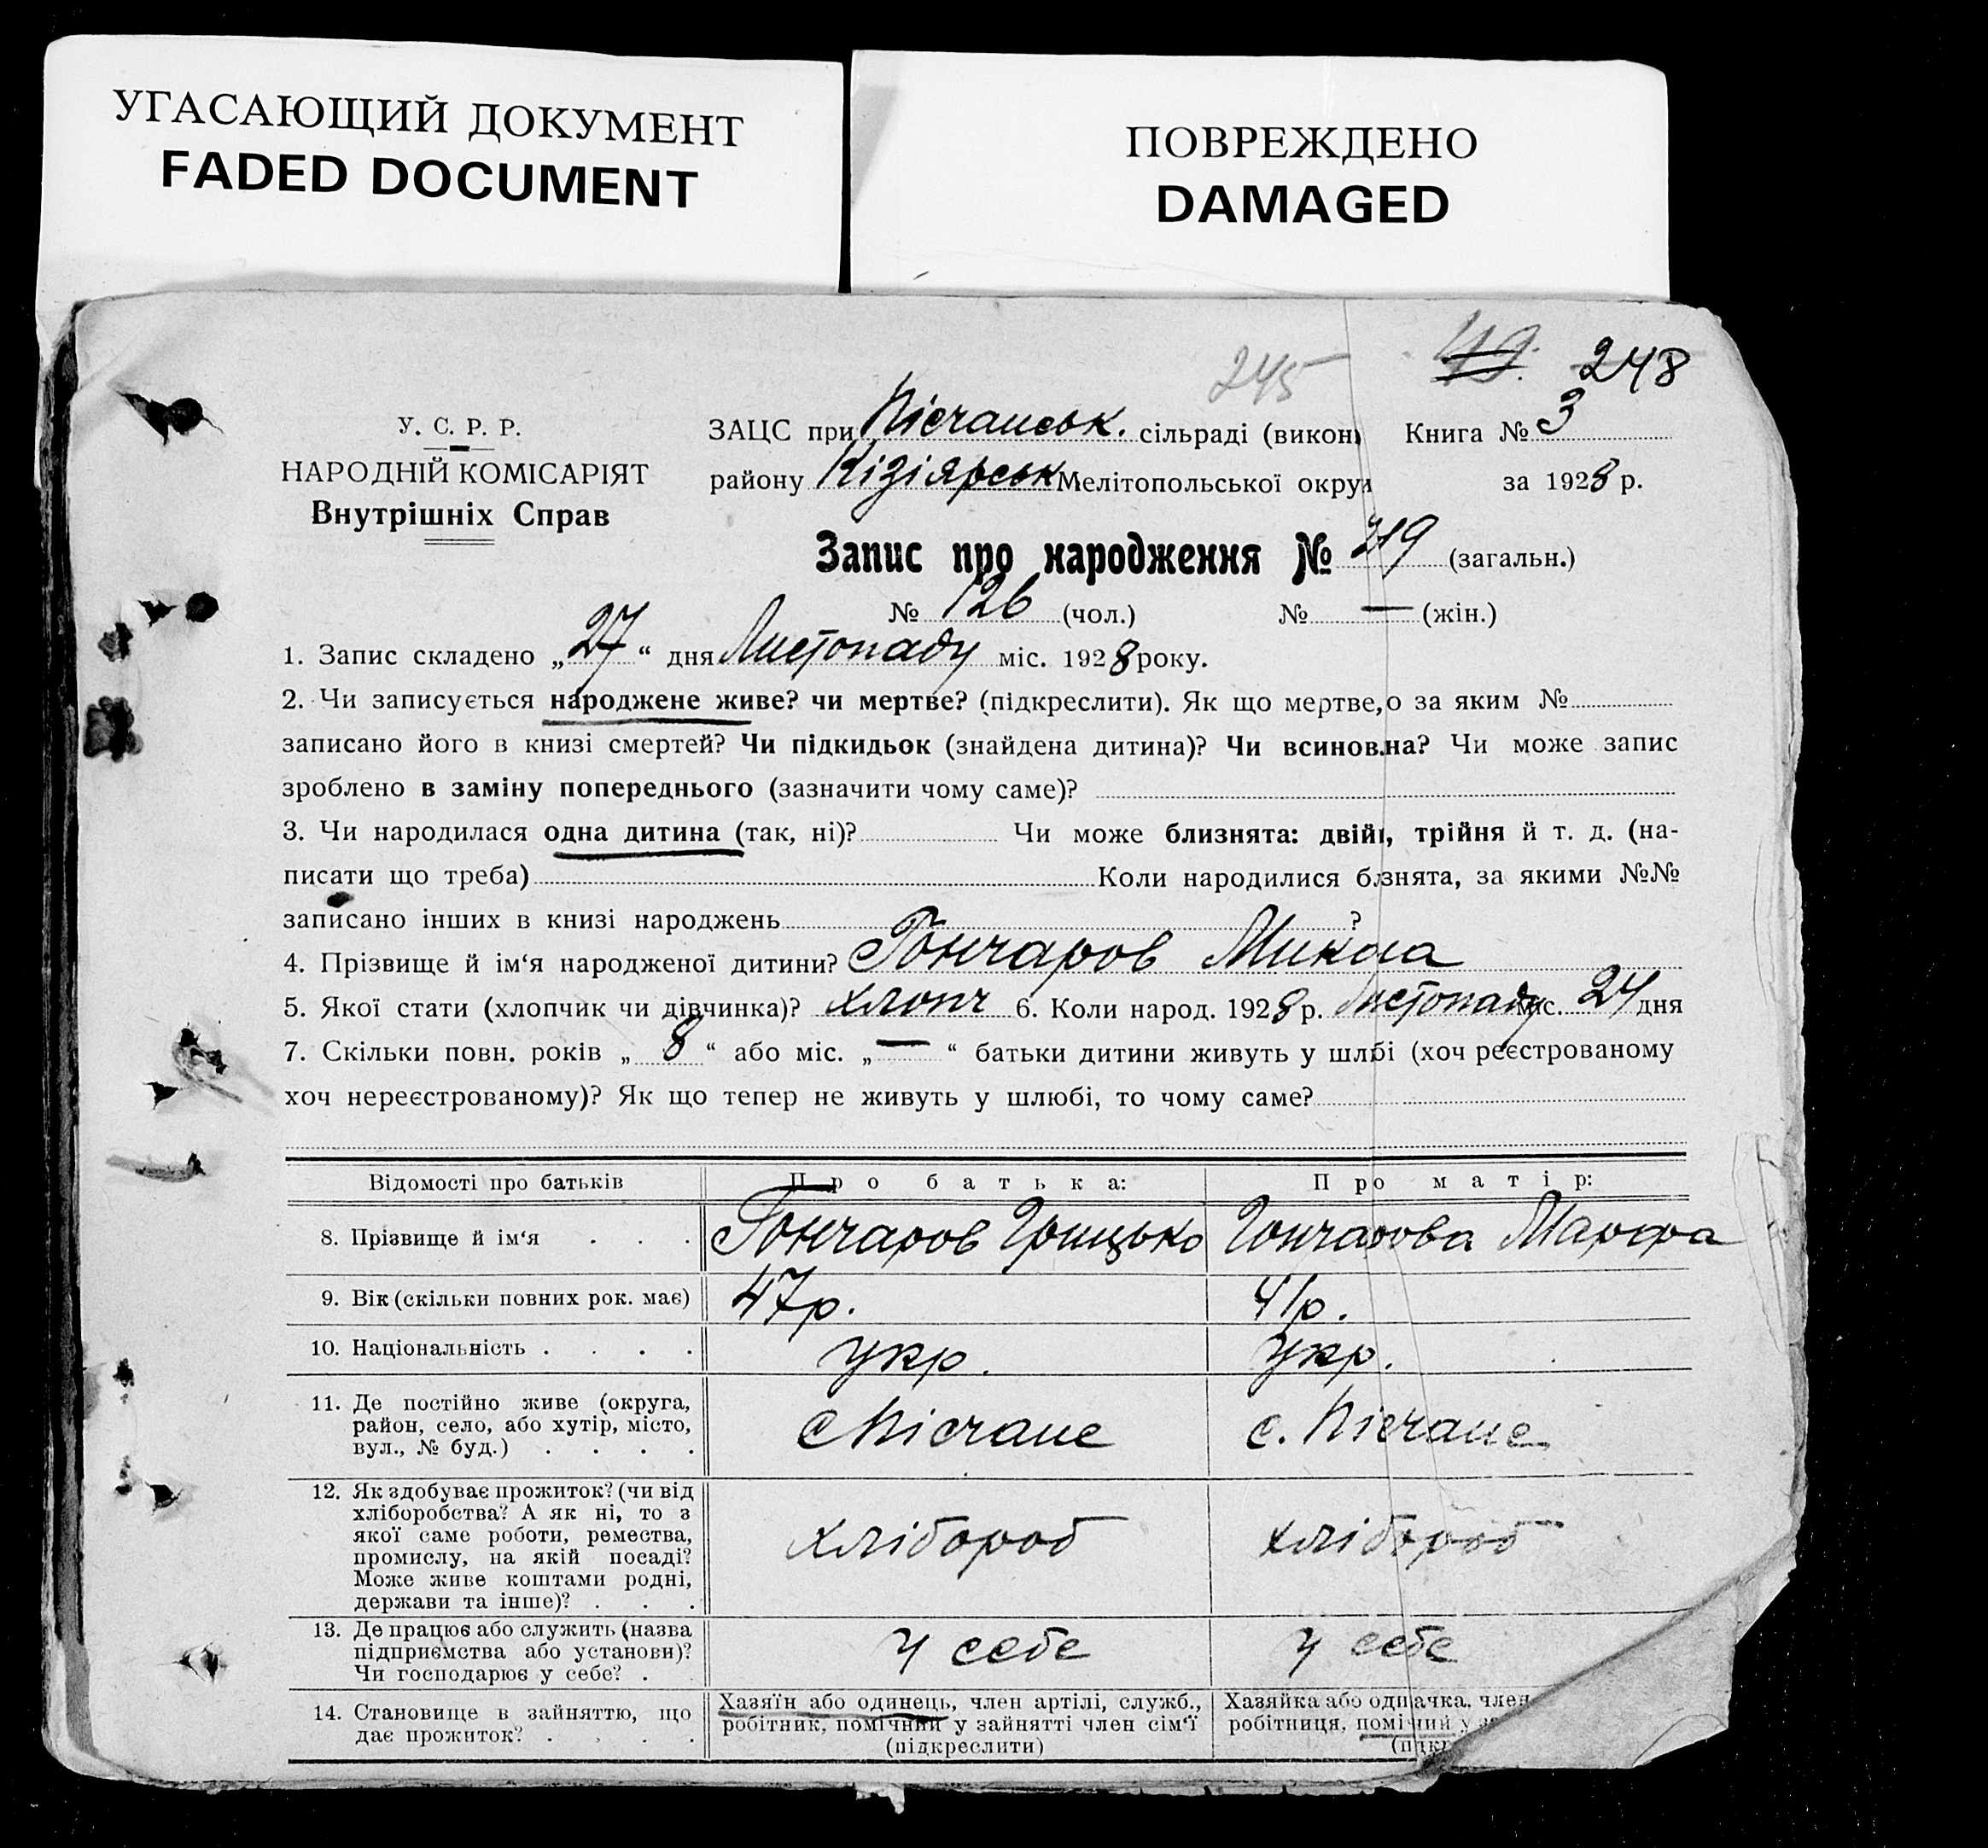 УГАСАЮЩИЙ ДОКУМЕНТ
FADED DOCUMENT
ПОВРЕЖДЕНО
DAMAGED
245 49. 248
У. С. Р. Р.
НАРОДНІЙ КОМІСАРІЯТ
Внутрішніх Справ
ЗАЦС при Пісчанськ. сільраді (викон Книга № 3
району Кізіярськ Мелітопольської окру за 1928 р.
Запис про народження № 219 (загальн.)
№ 126 (чол.) № — (жін.)
1. Запис складено „27“ дня Листопаду міс. 1928 року.
2. Чи записується народжене живе? чи мертве? (підкреслити). Як що мертве,о за яким №
записано його в книзі смертей? Чи підкидьок (знайдена дитина)? Чи всинов.на? Чи може запис
зроблено в заміну попереднього (зазначити чому саме)?
3. Чи народилася одна дитина (так, ні)? Чи може близнята: двій, трійня й т. д. (на-
писати що треба) Коли народилися бзнята, за якими №№
записано інших в книзі народжень ?
4. Прізвище й ім‘я народженої дитини? Гончаров Микола
5. Якої стати (хлопчик чи дівчинка)? хлопч 6. Коли народ. 1928 р. Листопаду міс. 24 дня
7. Скільки повн. років „8“ або міс. „—“ батьки дитини живуть у шлбі (хоч реєстрованому
хоч нереєстрованому)? Як що тепер не живуть у шлюбі, то чому саме?
Відомості про батьків Про батька: Про матір:
8. Прізвище й ім‘я . . . Гончаров Грицько Гончарова Марфа
9. Вік (скільки повних рок. має) 47р. 41р.
10. Національність . . . . укр. укр.
11. Де постійно живе (округа,
район, село, або хутір, місто,
вул., № буд.) . . . .
с Пісчане с. Пісчане
12. Як здобуває прожиток? (чи від
хліборобства? А як ні, то з
якої саме роботи, ремества,
промислу, на якій посаді?
Може живе коштами родні,
держави та інше)? . . .
хлібороб хлібороб
13. Де працює або служить (назва
підприємства або установи)?
Чи господарює у себе? .
у себе у себе
14. Становище в зайняттю, що
дає прожиток? . . . .
Хазяїн або одинець, член артілі, служб.,
робітник, помічний у зайнятті член сім‘ї
(підкреслити)
Хазяйка або одиачка, член
робітниця, помічний у